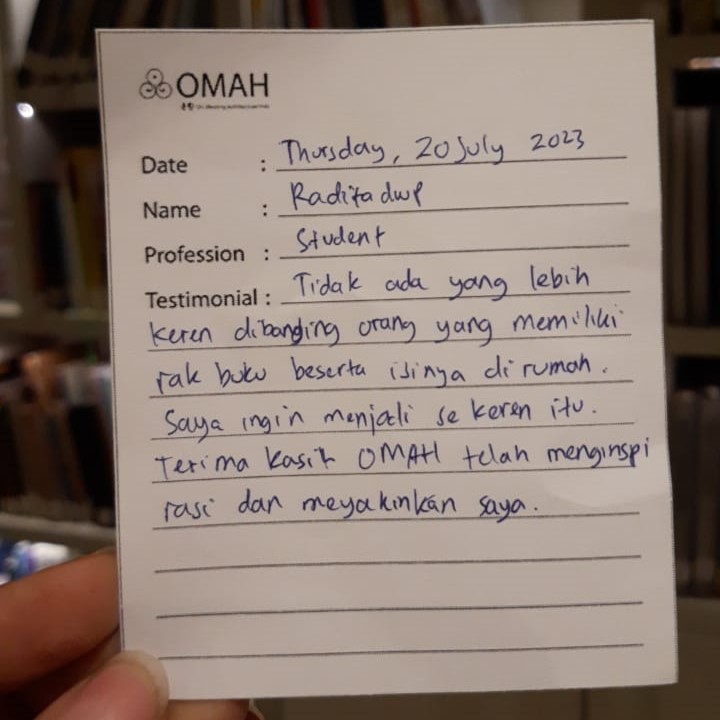 OMAH
Date : Thursday, 20 July 2023
Name : Radita dwp
Profession : Student
Testimonial : Tidak ada yang lebih
keren dibanding orang yang memiliki
rak buku beserta isinya di rumah.
Saya ingin menjadi se keren itu.
Terima kasih OMAH telah menginspi
rasi dan meyakinkan saya.